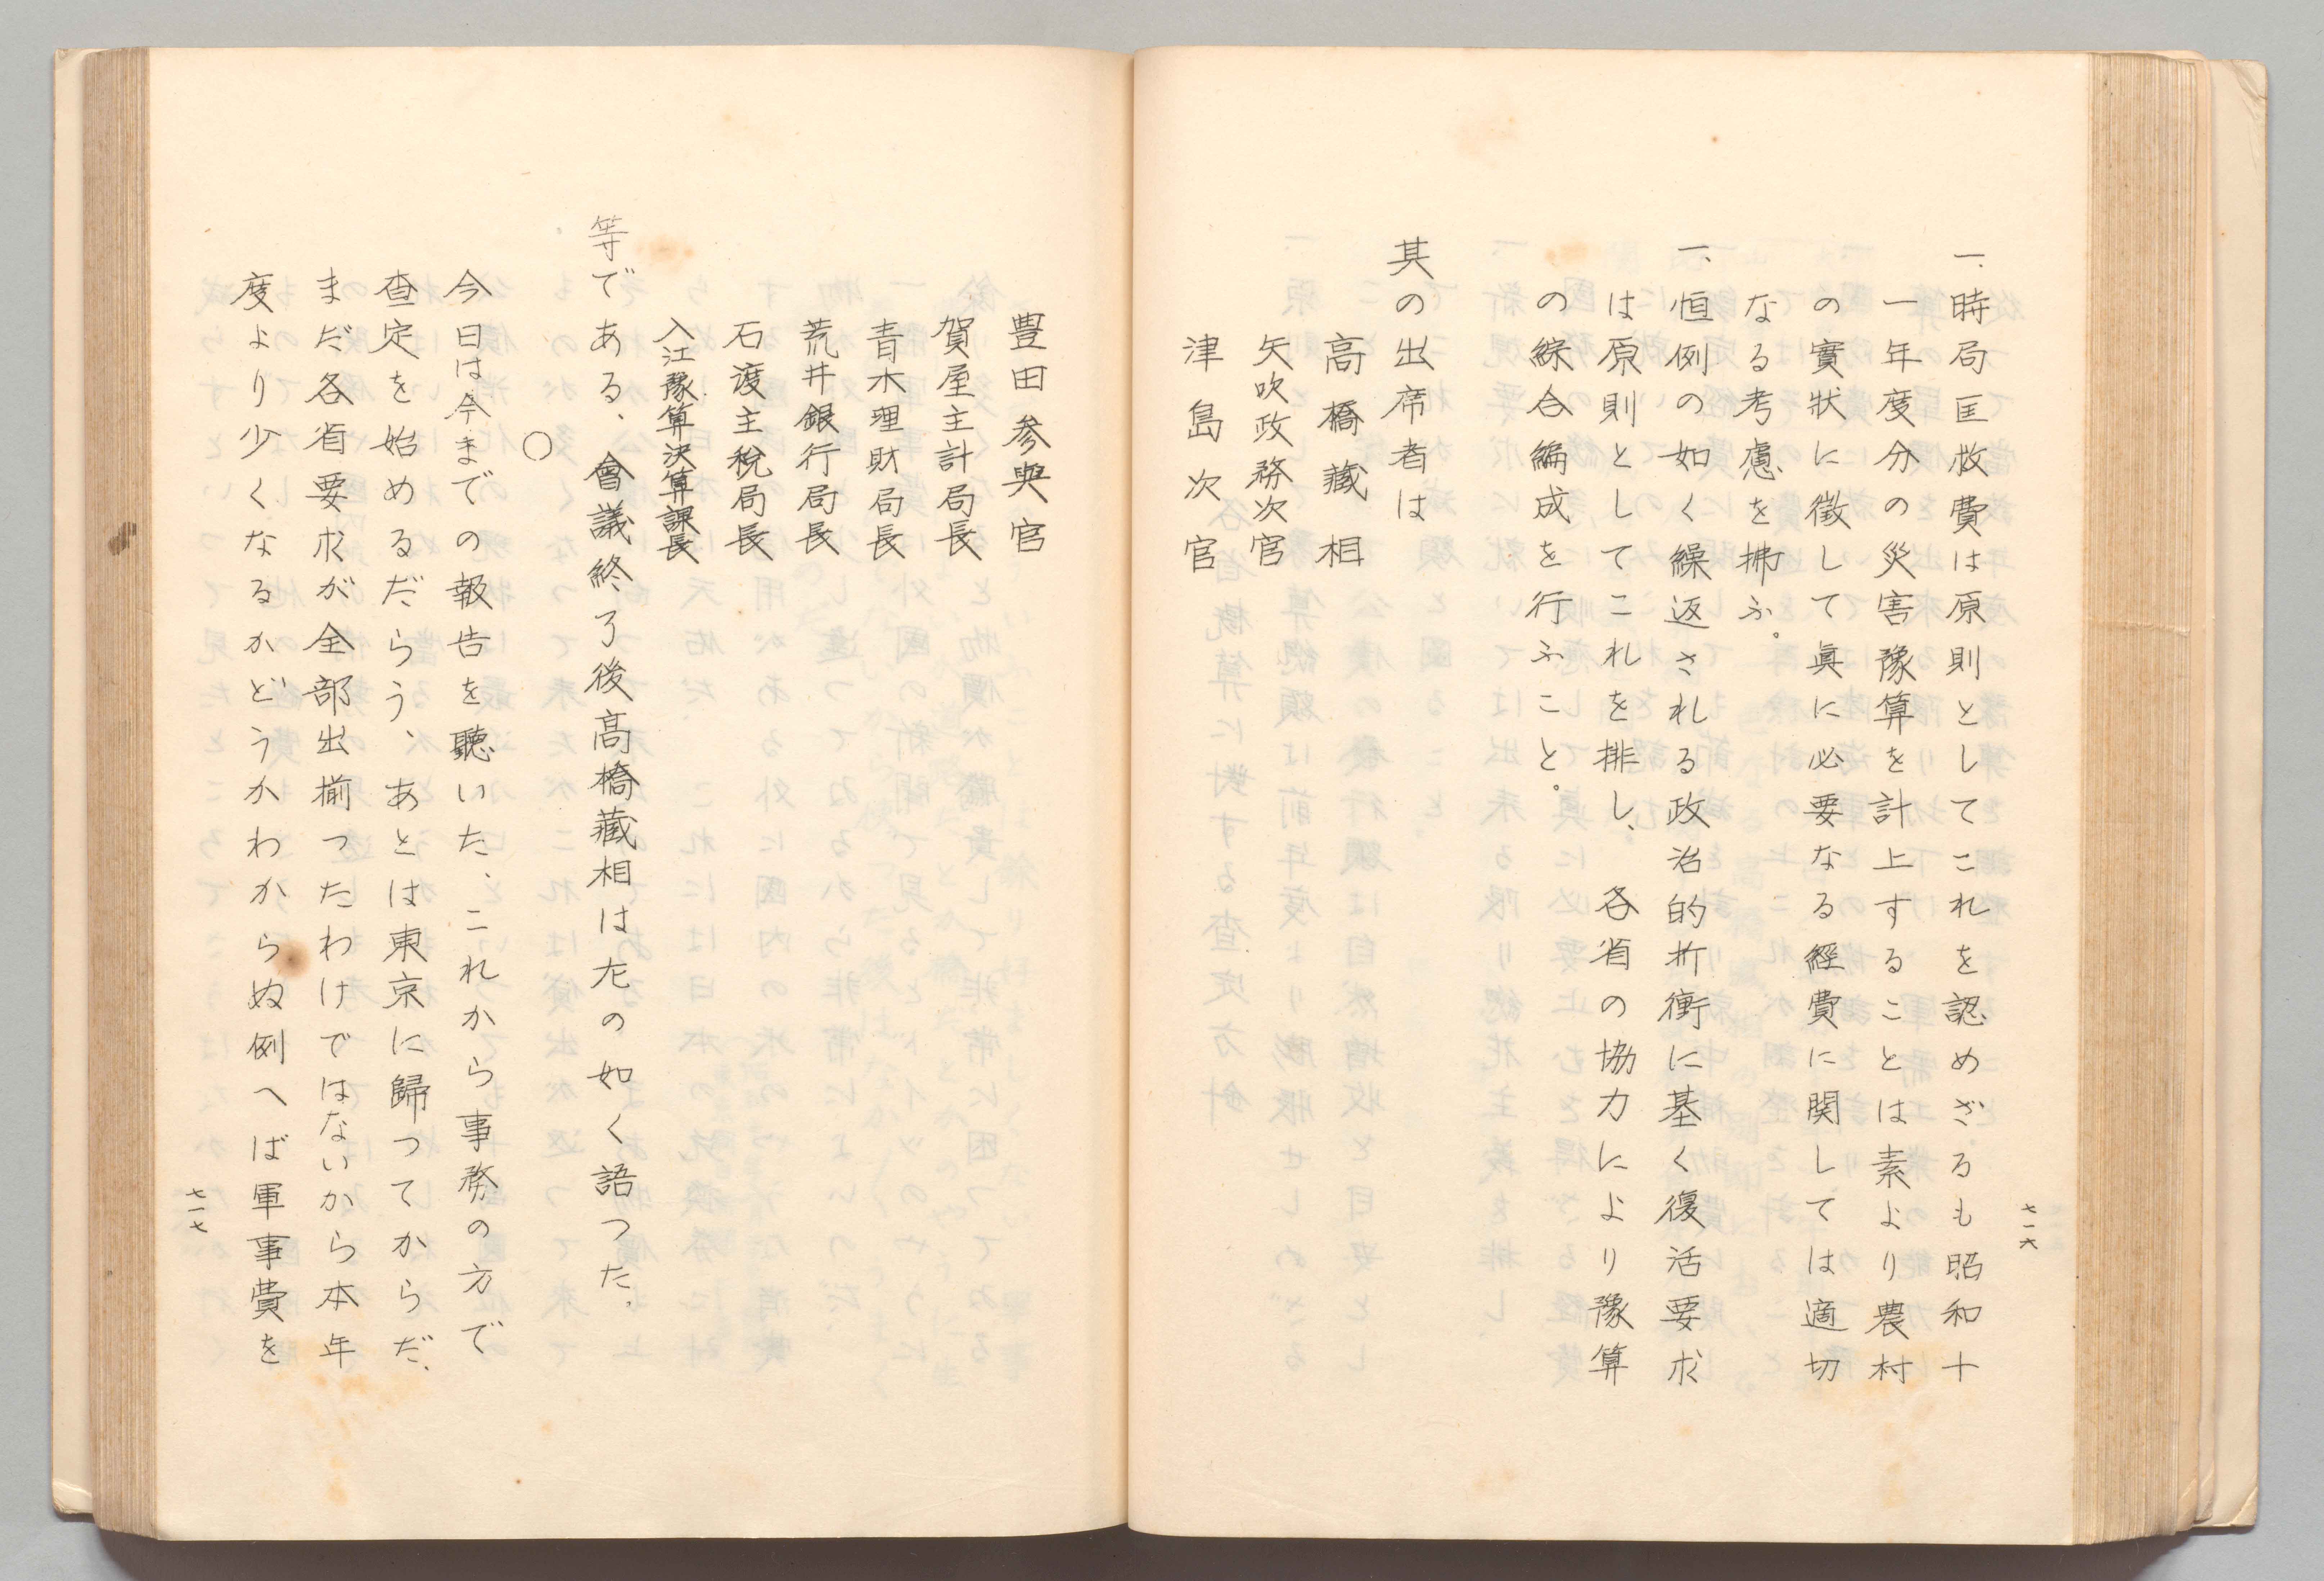 七一六
一、時局匡救費は原則としてこれを認めざるも昭和十
一年度分の災害豫算を計上することは素より農村
の實狀に徴して眞に必要なる經費に関しては適切
なる考慮を拂ふ。
一、恒例の如く繰返される政治的折衝に基く復活要求
は原則としてこれを排し、各省の協力により豫算
の綜合編成を行ふこと。
其の出席者は
高橋藏相
矢吹政務次官
津島次官
豊田参與官
賀屋主計局長
青木理財局長
荒井銀行局長
石渡主稅局長
入江豫算決算課長
等である、會議終了後高橋藏相は左の如く語つた、
○
今日は今までの報告を聽いた、これから事務の方で
査定を始めるだらう、あとは東京に歸つてからだ、
まだ各省要求が全部出揃つたわけではないから本年
度より少くなるかどうかわからぬ例へば軍事費を
七一七